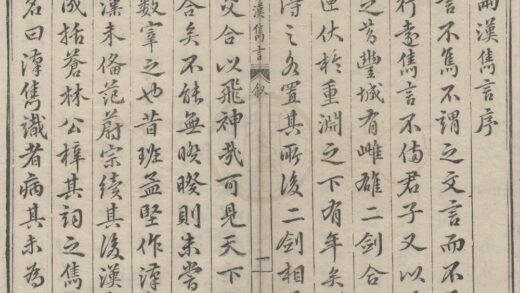 兩漢雋言序
言不雋不謂之文言而不
行遠雋言不備君子又以
之昔豐城有雌雄二劍合
匣伏於重淵之下有年矣
得之各置其所後二劍相
漢雋言 敘 二
交合以飛神哉可見天下
合矣不能無暌暌則未嘗
數宰之也昔班孟堅作漢
漢未備范蔚宗續其後漢
成括蒼林公梓其詞之雋
名曰漢雋識者病其未為